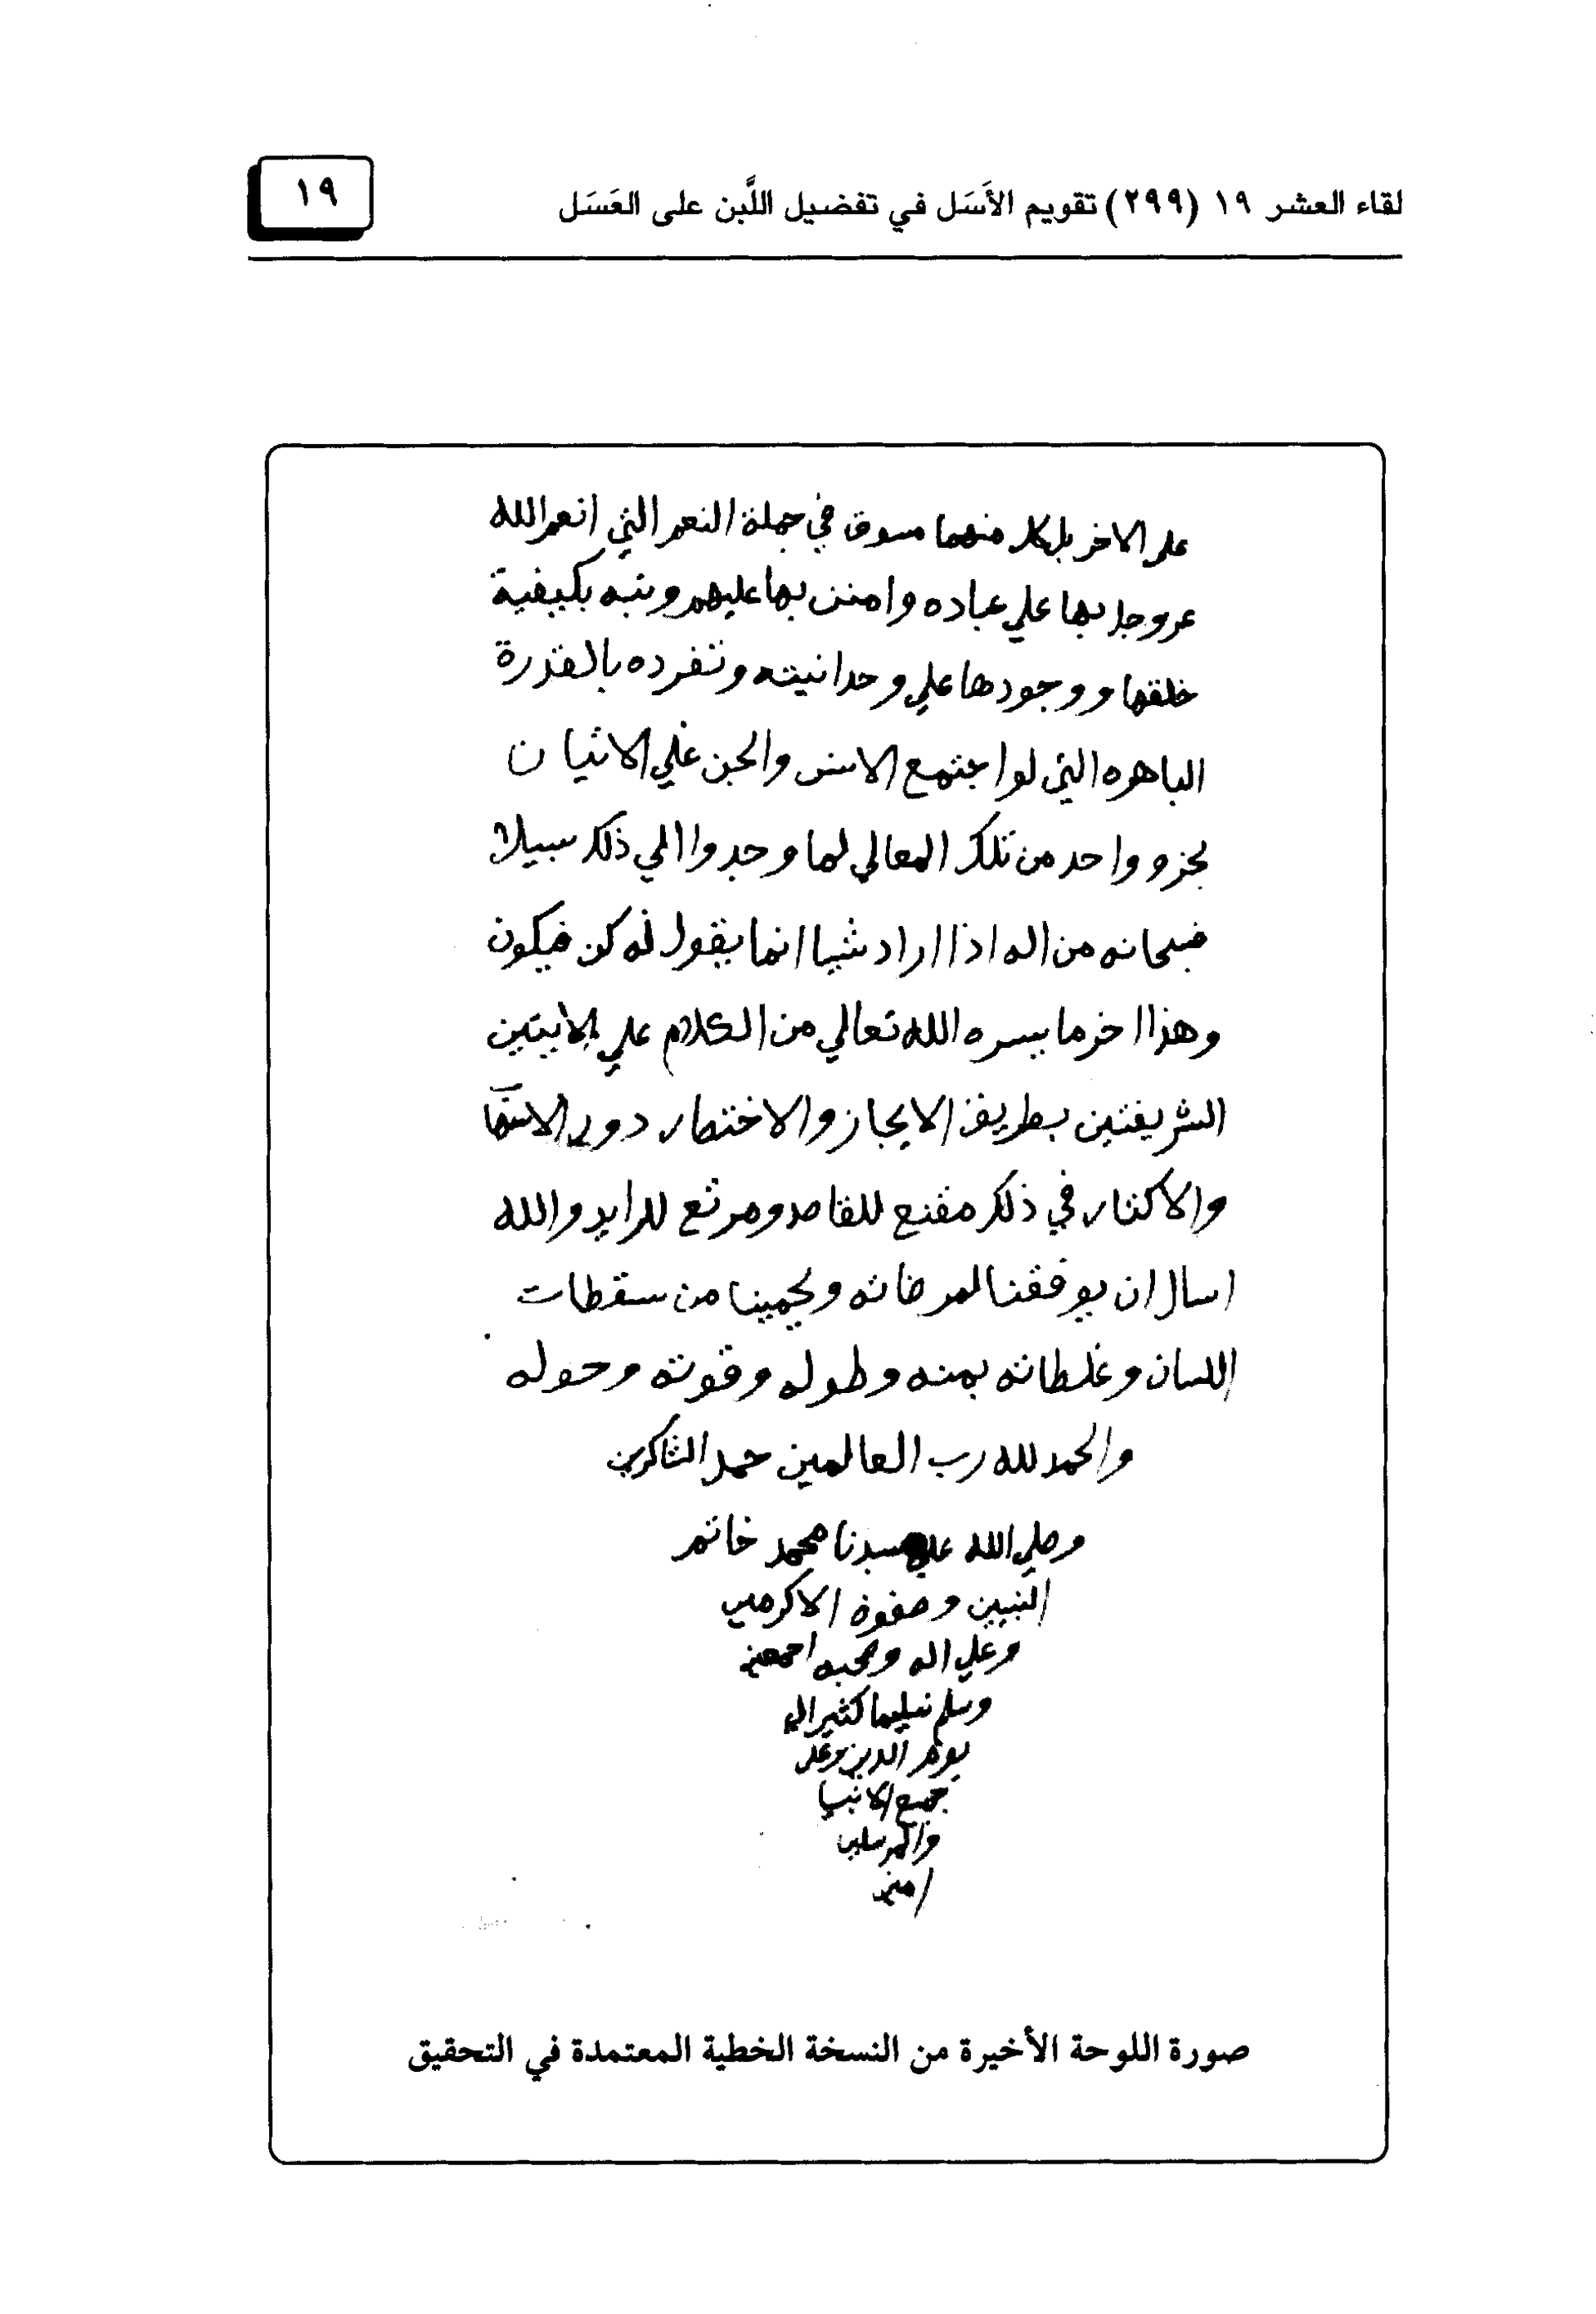 لقاء العشر ١٩ (٢٩٩) تقويم الأَسَل في تفضيل اللَّبن على العَسَل
١٩
على الاخر بل كل منهما مسوق في جملة النعم التي انعم الله
عز وجل بها علي عباده وامتن بها عليهم ونبه بكيفية
خلقها ووجودها علي وحدانيته وتفرده بالقدرة
الباهره التي لو اجتمع الانس والجن علي الاتيان
بجزو واحد من تلك المعالي لما وجدوا الي ذلك سبيلا
فسبحانه من اله اذا اراد شيا انما يقول له كن فيكون
وهذا اخر ما يسره الله تعالي من الكلام علي الايتين
الشريفتين بطريق الايجاز والاختصار دون الاسها
والاكثار في ذلك مقنع للقاصد ومرتع للرايد والله
اسال ان يوفقنا لمرضاته ويحمينا من سقطات
اللسان وغلطاته بمنه وطوله وقوته وحوله
والحمد لله رب العالمين حمد الشاكرين
وصلي الله علي سيدنا محمد خاتم
النبيين وصفوة الاكرمين
وعلي اله وصحبه اجمعين
وسلم تسليما كثيرا الي
يوم الدين وعلى
جميع الانبيا
والمرسلين
امين
صورة اللوحة الأخيرة من النسخة الخطية المعتمدة في التحقيق